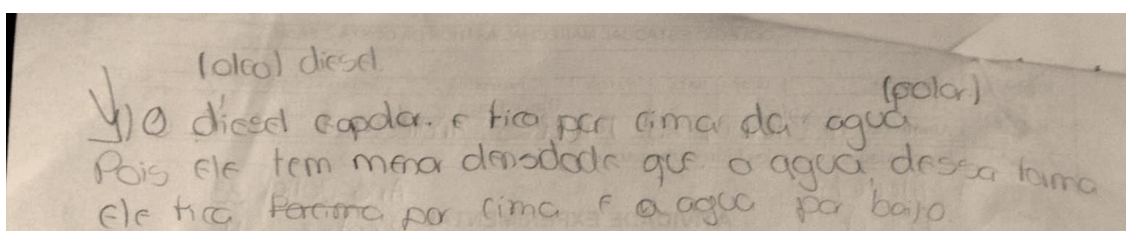 (olco) diesel
(polar)
4) O diesel e apolar. e fica por cima da agua
Pois ele tem menor densidade que a agua, dessa forma
ele fica por cima e a agua por baixo